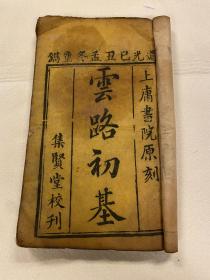 道光己丑孟冬重鐫
上庸書院原刻
雲路初基
集賢堂校刊